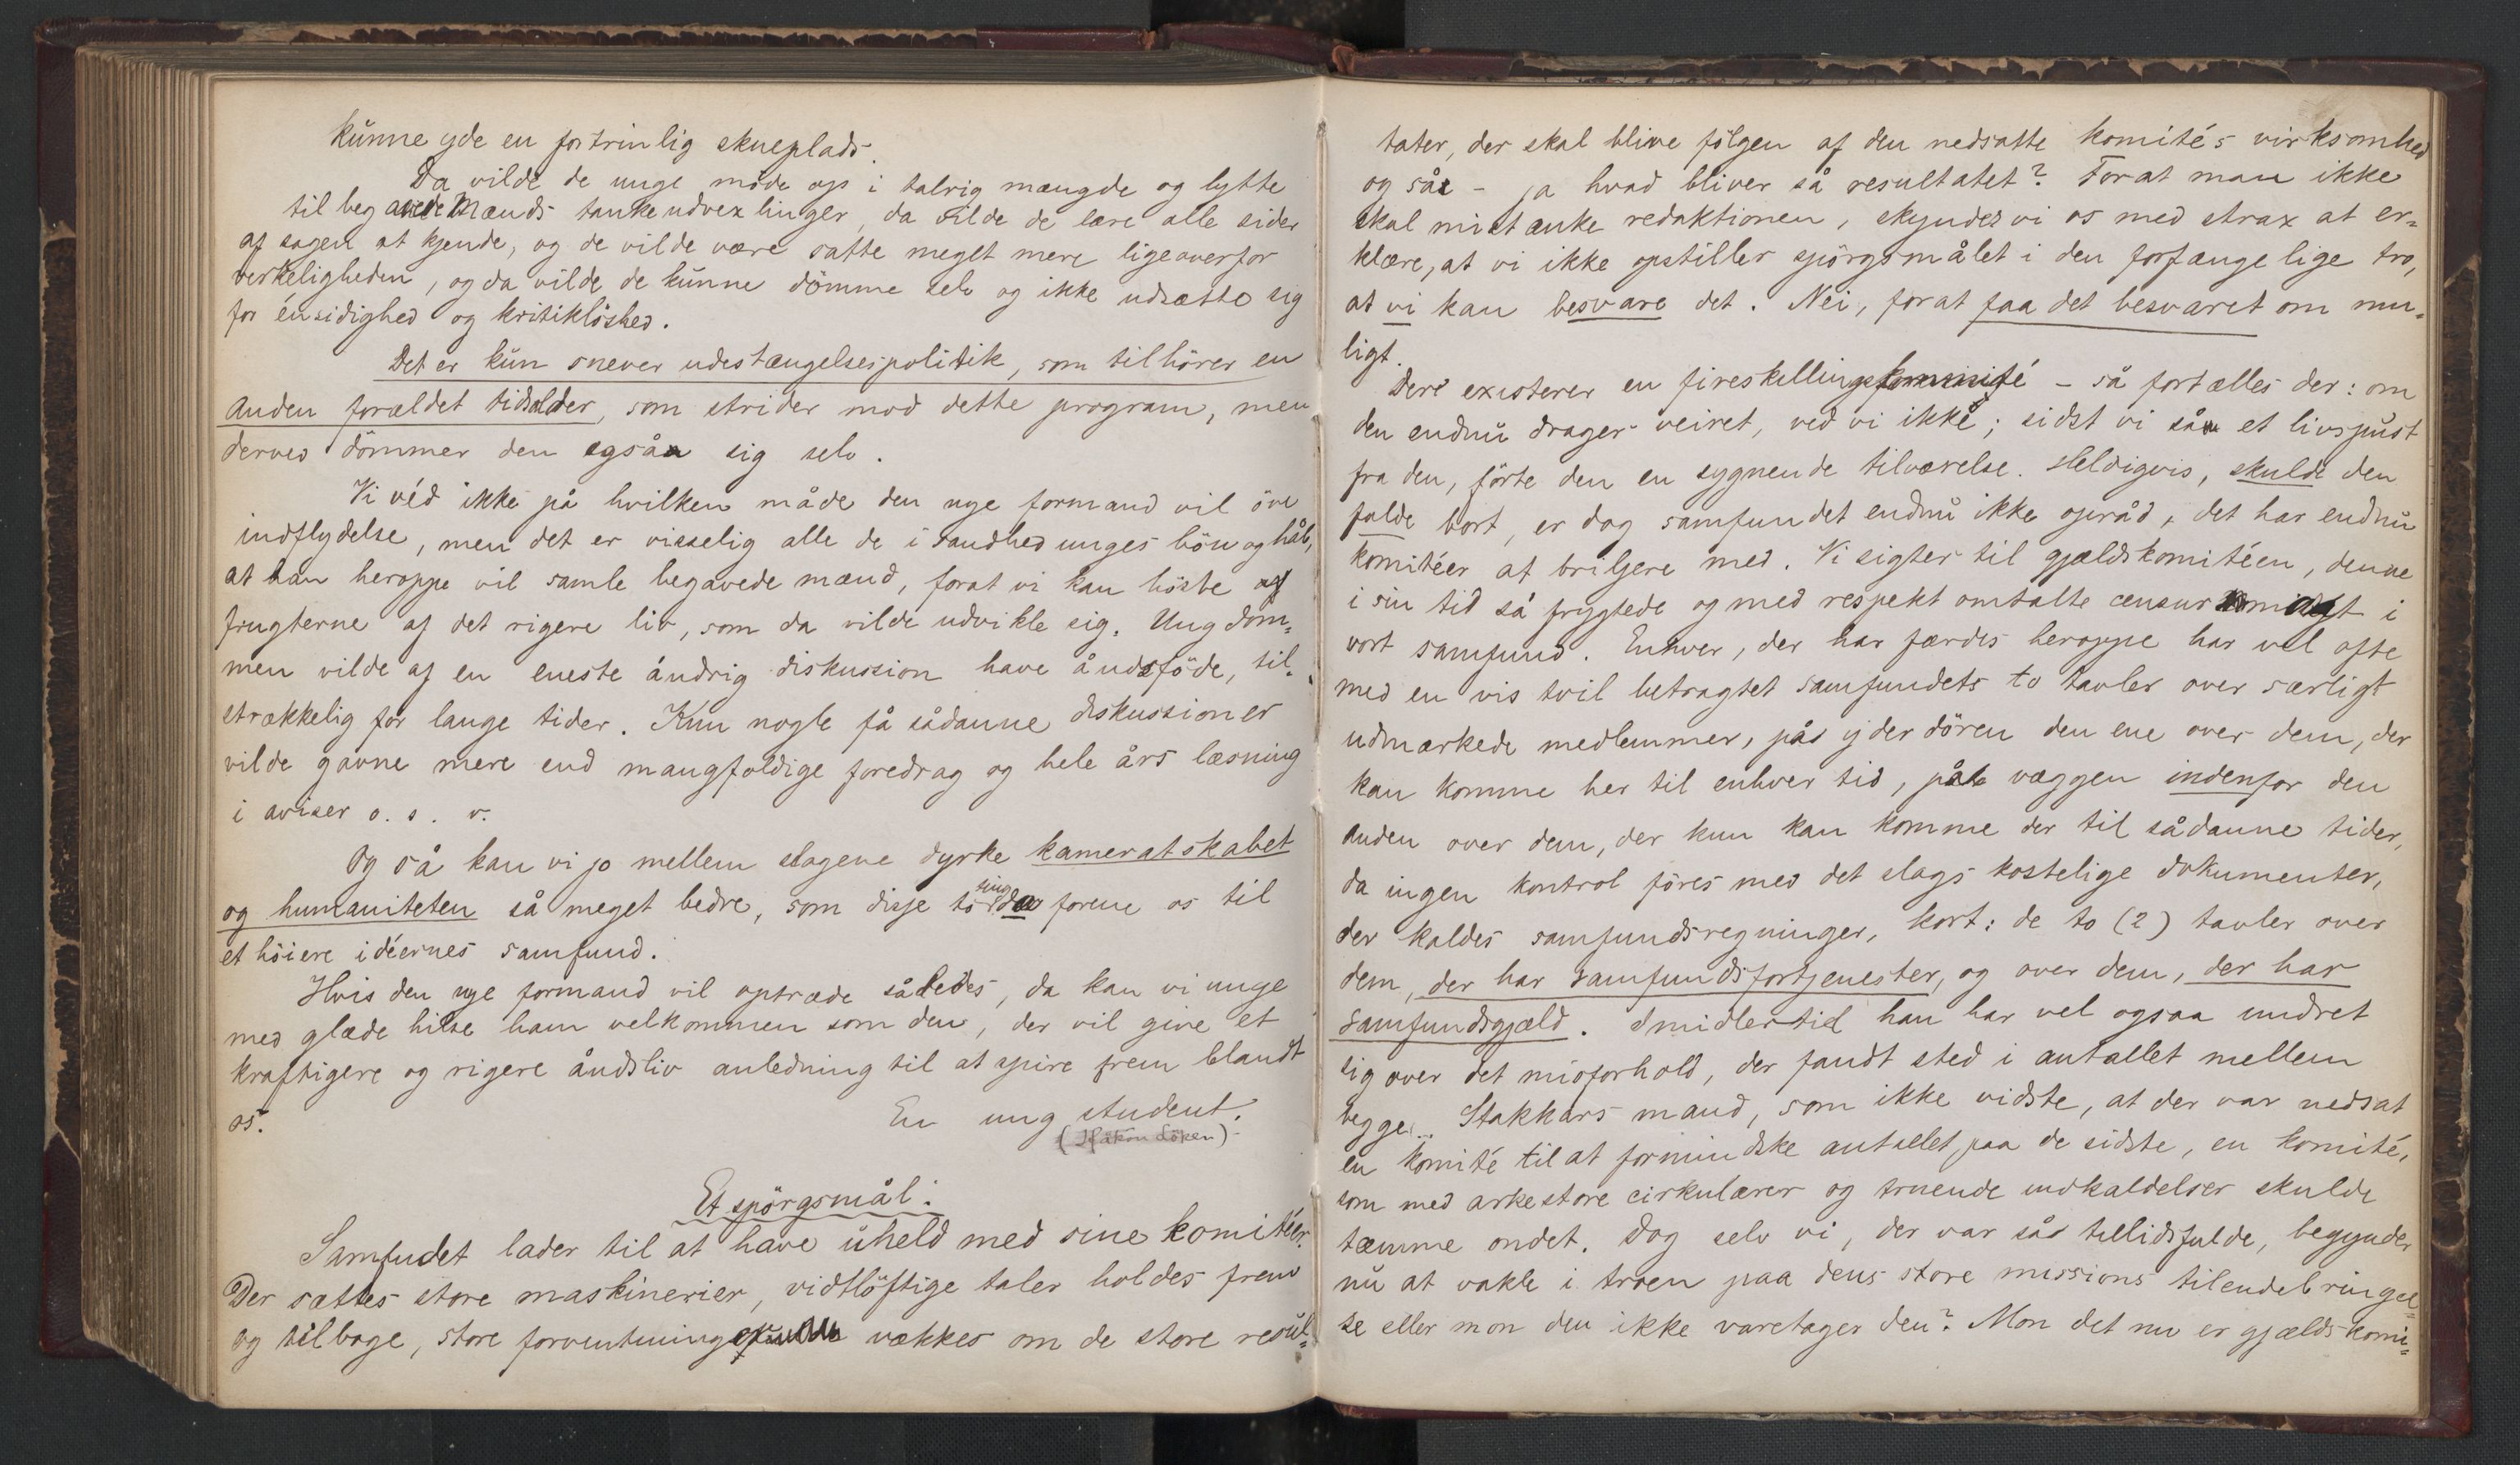 kunne yde en fortrinlig skueplads.
Da vilde de unge møde op i talrig mængde og lytte
til begavede Mænds tankeudvexlinger, da vilde de lære alle sider
af sagen at kjende, og de vilde være satte meget mere ligeoverfor
verkeligheden, og da vilde de kunne dömme selv og ikke udsætte sig
for énsidighed og kritiklöshed.
Det er kun snever udestængelsespolitik, som tilhörer en
anden forældet tidsalder, som strider mod dette program, men
derved dömmer den også sig selv.
Vi véd ikke på hvilken måde den nye formand vil öve
indflydelse, men det er visselig alle de i sandhed unges bön og håb,
at han heroppe vil samle begavede mænd, forat vi kan höste af
frugterne af det rigere liv, som da vilde udvikle sig. Ungdom=
men vilde af en eneste åndrig diskussion have åndsföde, til=
strækkelig for lange tider. Kun nogle få sådanne diskussioner
vilde gavne mere end mangfoldige foredrag og hele års læsning
i aviser o. s. v.
Og så kan vi jo mellem slagene dyrke kameratskabet
og humaniteten så meget bedre, som disse to ting da forene os til
et höiere idéernes samfund.
Hvis den nye formand vil optræde således, da kan vi unge
med glæde hilse ham velkommen som den, der vil give et
kraftigere og rigere åndsliv anledning til at spire frem blandt
os.
En ung student.
(Håkon Löken).
Et spörgsmål:
Samfudet lader til at have uheld med sine komitéer.
Der sættes store maskinerier, vidtlöftige taler holdes frem
og tilbage, store forventninger vækkes om de store resul=
tater, der skal blive fölgen af den nedsatte komités virksomhed
og så - ja hvad bliver så resultatet? Forat man ikke
skal mistænke redaktionen, skynder vi os med strax at er=
klære, at vi ikke opstiller spörgsmålet i den forfængelige tro,
at vi kan besvare det. Nei, forat faa det besvaret om mu=
ligt.
Der existerer en fireskillingskomité - så fortælles der: om
den endnu drager veiret, ved vi ikke; sidst vi så et livspust
fra den, förte den en sygnende tilværelse. Heldigvis, skulde den
falde bort, er dog samfundet endnu ikke opråd, det har endnu
komitéer at briljere med. Vi sigter til gjældskomitéen, denne
i sin tid så frygtede og med respekt omtalte censurmagt i
vort samfund. Enhver, der har færdes heroppe har vel ofte
med en vis tvil betragtet samfundets to tavler over særligt
udmærkede medlemmer, på yderdören den ene over dem, der
kan komme her til enhver tid, på væggen indenfor den
anden over dem, der kun kan komme der til sådanne tider,
da ingen kontrol föres med det slags kostelige dokumenter,
der kaldes samfundsregninger, kort: de to (2) tavler over
dem, der har samfundsfortjenester, og over dem, der har
samfundsgjæld. Imidlertid han har vel ogsaa undret
sig over det misforhold, der fandt sted i antallet mellem
begge... Stakkars mand, som ikke vidste, at der var nedsat
en komité til at formindske antallet paa de sidste, en komité,
som med arkestore cirkulærer og truende indkaldelser skulde
tæmme ondet. Dog selv vi, der var så tillidsfulde, begynder
nu at vakle i troen paa dens store missions tilendebringel=
se eller mon den ikke varetager den? Mon det nu er gjældskomi=